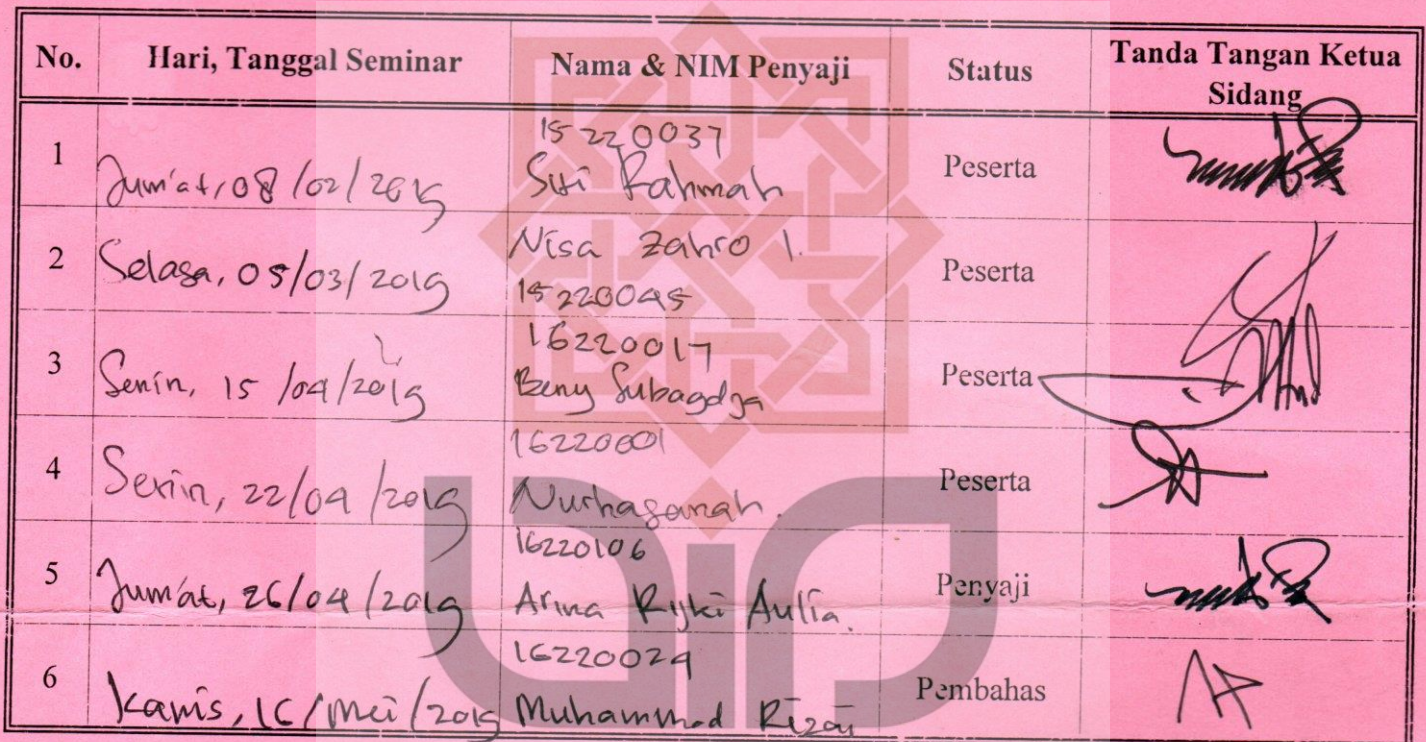 No. Hari, Tanggal Seminar Nama & NIM Penyaji Status Tanda Tangan Ketua Sidang
1 Jum'at, 08/02/2019 15220037 Siti Rahmah Peserta
2 Selasa, 05/03/2019 Nisa Zahro I. 15220045 Peserta
3 Senin, 15/04/2019 16220017 Beny Subagdja Peserta
4 Senin, 22/04/2019 16220001 Nurhasanah. Peserta
5 Jum'at, 26/04/2019 16220106 Arina Rizki Aulia. Penyaji
6 Kamis, 16/Mei/2019 16220024 Muhammad Pembahas